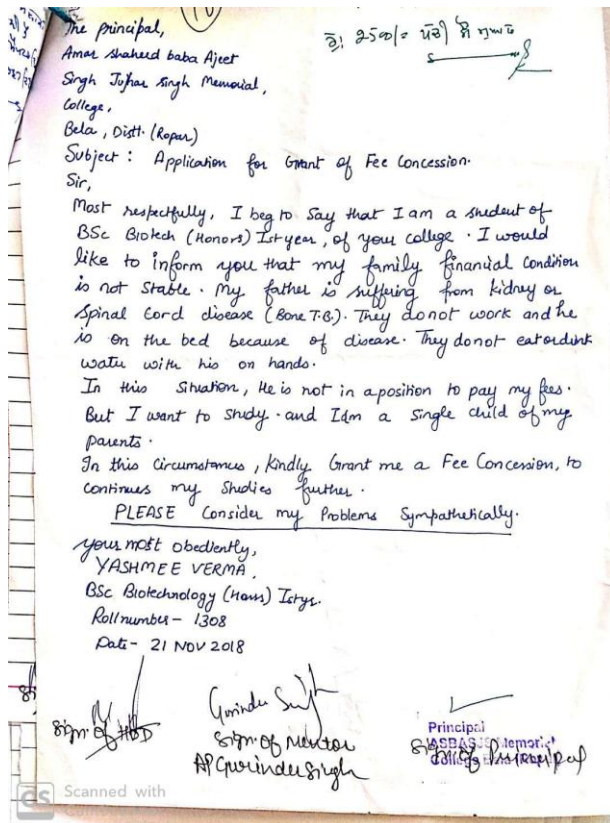 The principal,
Amar Shaheed baba Ajeet
Singh Jujhar Singh Memorial,
College,
Bela, Distt. (Ropar)
Subject : Application for Grant of Fee Concession.
Sir,
Most respectfully, I beg to say that I am a student of
BSc Biotech (Honors) Ist year, of your college. I would
like to inform you that my family financial condition
is not stable. My father is suffering from kidney or
Spinal Cord disease (Bone T.B.). They do not work and he
is on the bed because of disease. They do not eat or dink
water with his on hands.
In this situation, He is not in a position to pay my fees.
But I want to study. and I am a single child of my
parents.
In this circumstances, kindly Grant me a Fee Concession, to
continues my studies further.
PLEASE Consider my Problems Sympathetically.
your most obediently,
YASHMEE VERMA.
BSc Biotechnology (Hons) Ist yr.
Roll number - 1308
Date - 21 NOV 2018
Sign. of HOD
Gurinder Singh
Sign. of Mentor
AP Gurinder Singh
Principal
ASBASJS Memorial
College Bela (Ropar)
Sign. of Principal
CS Scanned with